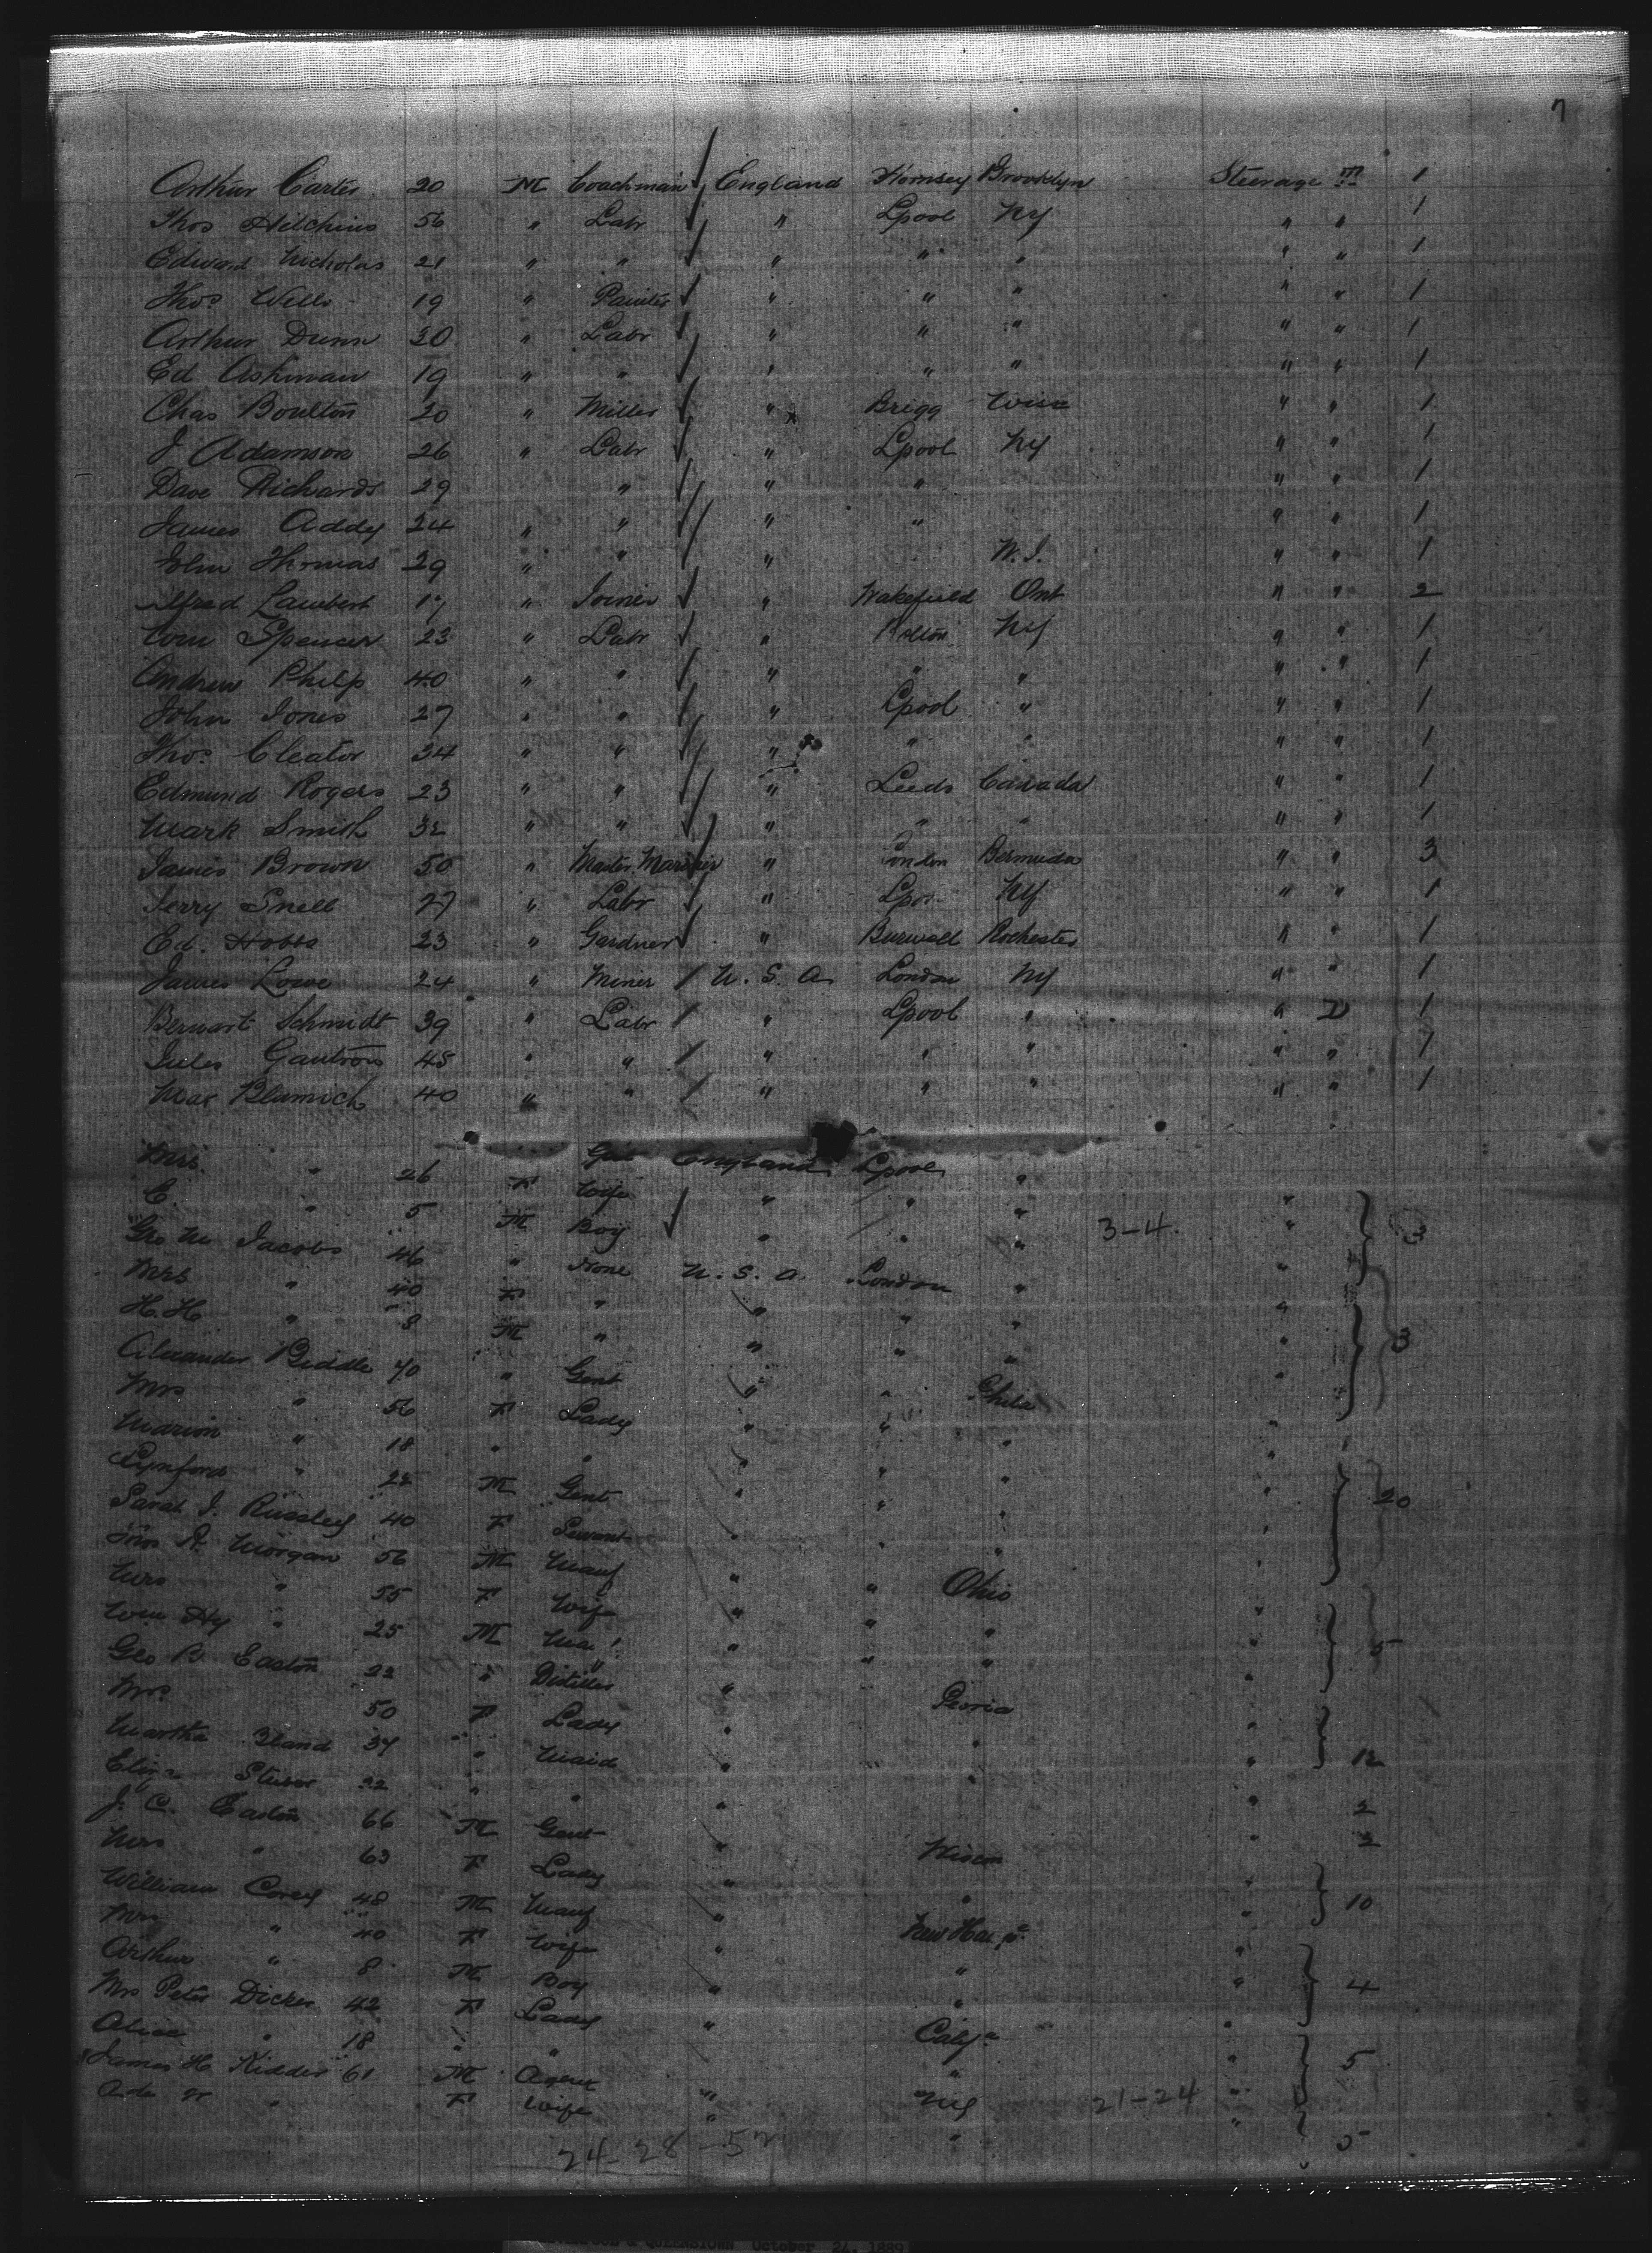 7
Arthur Carter 20 M Coachman England Hornsey Brooklyn Steerage m 1
Thos Hitchins 56 " Labr " Lpool NY " " 1
Edward Nicholas 21 " " " " " " " 1
Thos Wells 19 " Painter " " " " " 1
Arthur Dunn 30 " Labr " " " " " 1
Ed Ashman 19 " " " " " " " 1
Chas Boulton 20 " Miller " Brigg Wisc " " 1
J Adamson 26 " Labr " Lpool NY " " 1
Dave Richards 29 " " " " " 1
James Addy 24 " " " " " " 1
John Thomas 29 " " " W.I. " " 1
Alfred Lambert 17 " Joiner " Wakefield Ont " " 2
Wm Spencer 23 " Labr " Bolton NY " " 1
Andrew Philp 40 " " " " " " " 1
John Jones 27 " " " Lpool " " " 1
Thos Cleator 34 " " " " " " " 1
Edmund Rogers 23 " " " Leeds Canada " " 1
Mark Smith 32 " " " " " " " 1
James Brown 50 " Master Mariner " London Bermuda " " 3
Jerry Snell 27 " Labr " Lpoo NY " " 1
Ed. Hobbs 23 " Gardner " Burwell Rochester " " 1
James Lowe 24 " Miner U.S.A. London NY " " 1
Bernart Schmidt 39 " Labr " Lpool " " D 1
Jules Gautron 45 " " " " " " " 7
Max Blumich 40 " " " " " " " 1
Gent England Lpool "
Mrs " 26 F Wife " " " "
C " 5 M Boy " " " 3-4 " 3
Geo M Jacobs 46 " None U.S.A. London " "
Mrs " 40 F " " " " "
H.H. " 8 M " " " " " 3
Alexander Biddle 70 " Gent " " Phila "
Mrs " 56 F Lady " " " "
Marion " 18 " " " " " "
Lynford " 22 M Gent " " " " 20
Sarah J. Russley 40 F Servant " " " "
Thos R. Morgan 56 M Manf " " Ohio "
Mrs " 55 F Wife " " " "
Wm Hy " 25 M Ma " " " " 5
Geo B Easton 22 " Distiller " Peoria "
Mrs 50 F Lady " " "
Martha Bland 34 " Maid " " " 12
Eliza 22 " " " " 2
J. C. Easton 66 M Gent " Wiscon " 2
Mrs " 63 F Lady " " "
William Corey 48 M Manf " New Hamp. " 10
Mrs " 40 F Wife " " "
Arthur " 8 M Boy " " " 4
Mrs Peter Dicker 42 F Lady " Calif. "
Alice " 18 " " " " 5
James H. Kidder 61 M Agent " NY 21-24 "
Ada " F Wife " " " 5
24-28-52
& QUEENSTOWN October 24, 1889